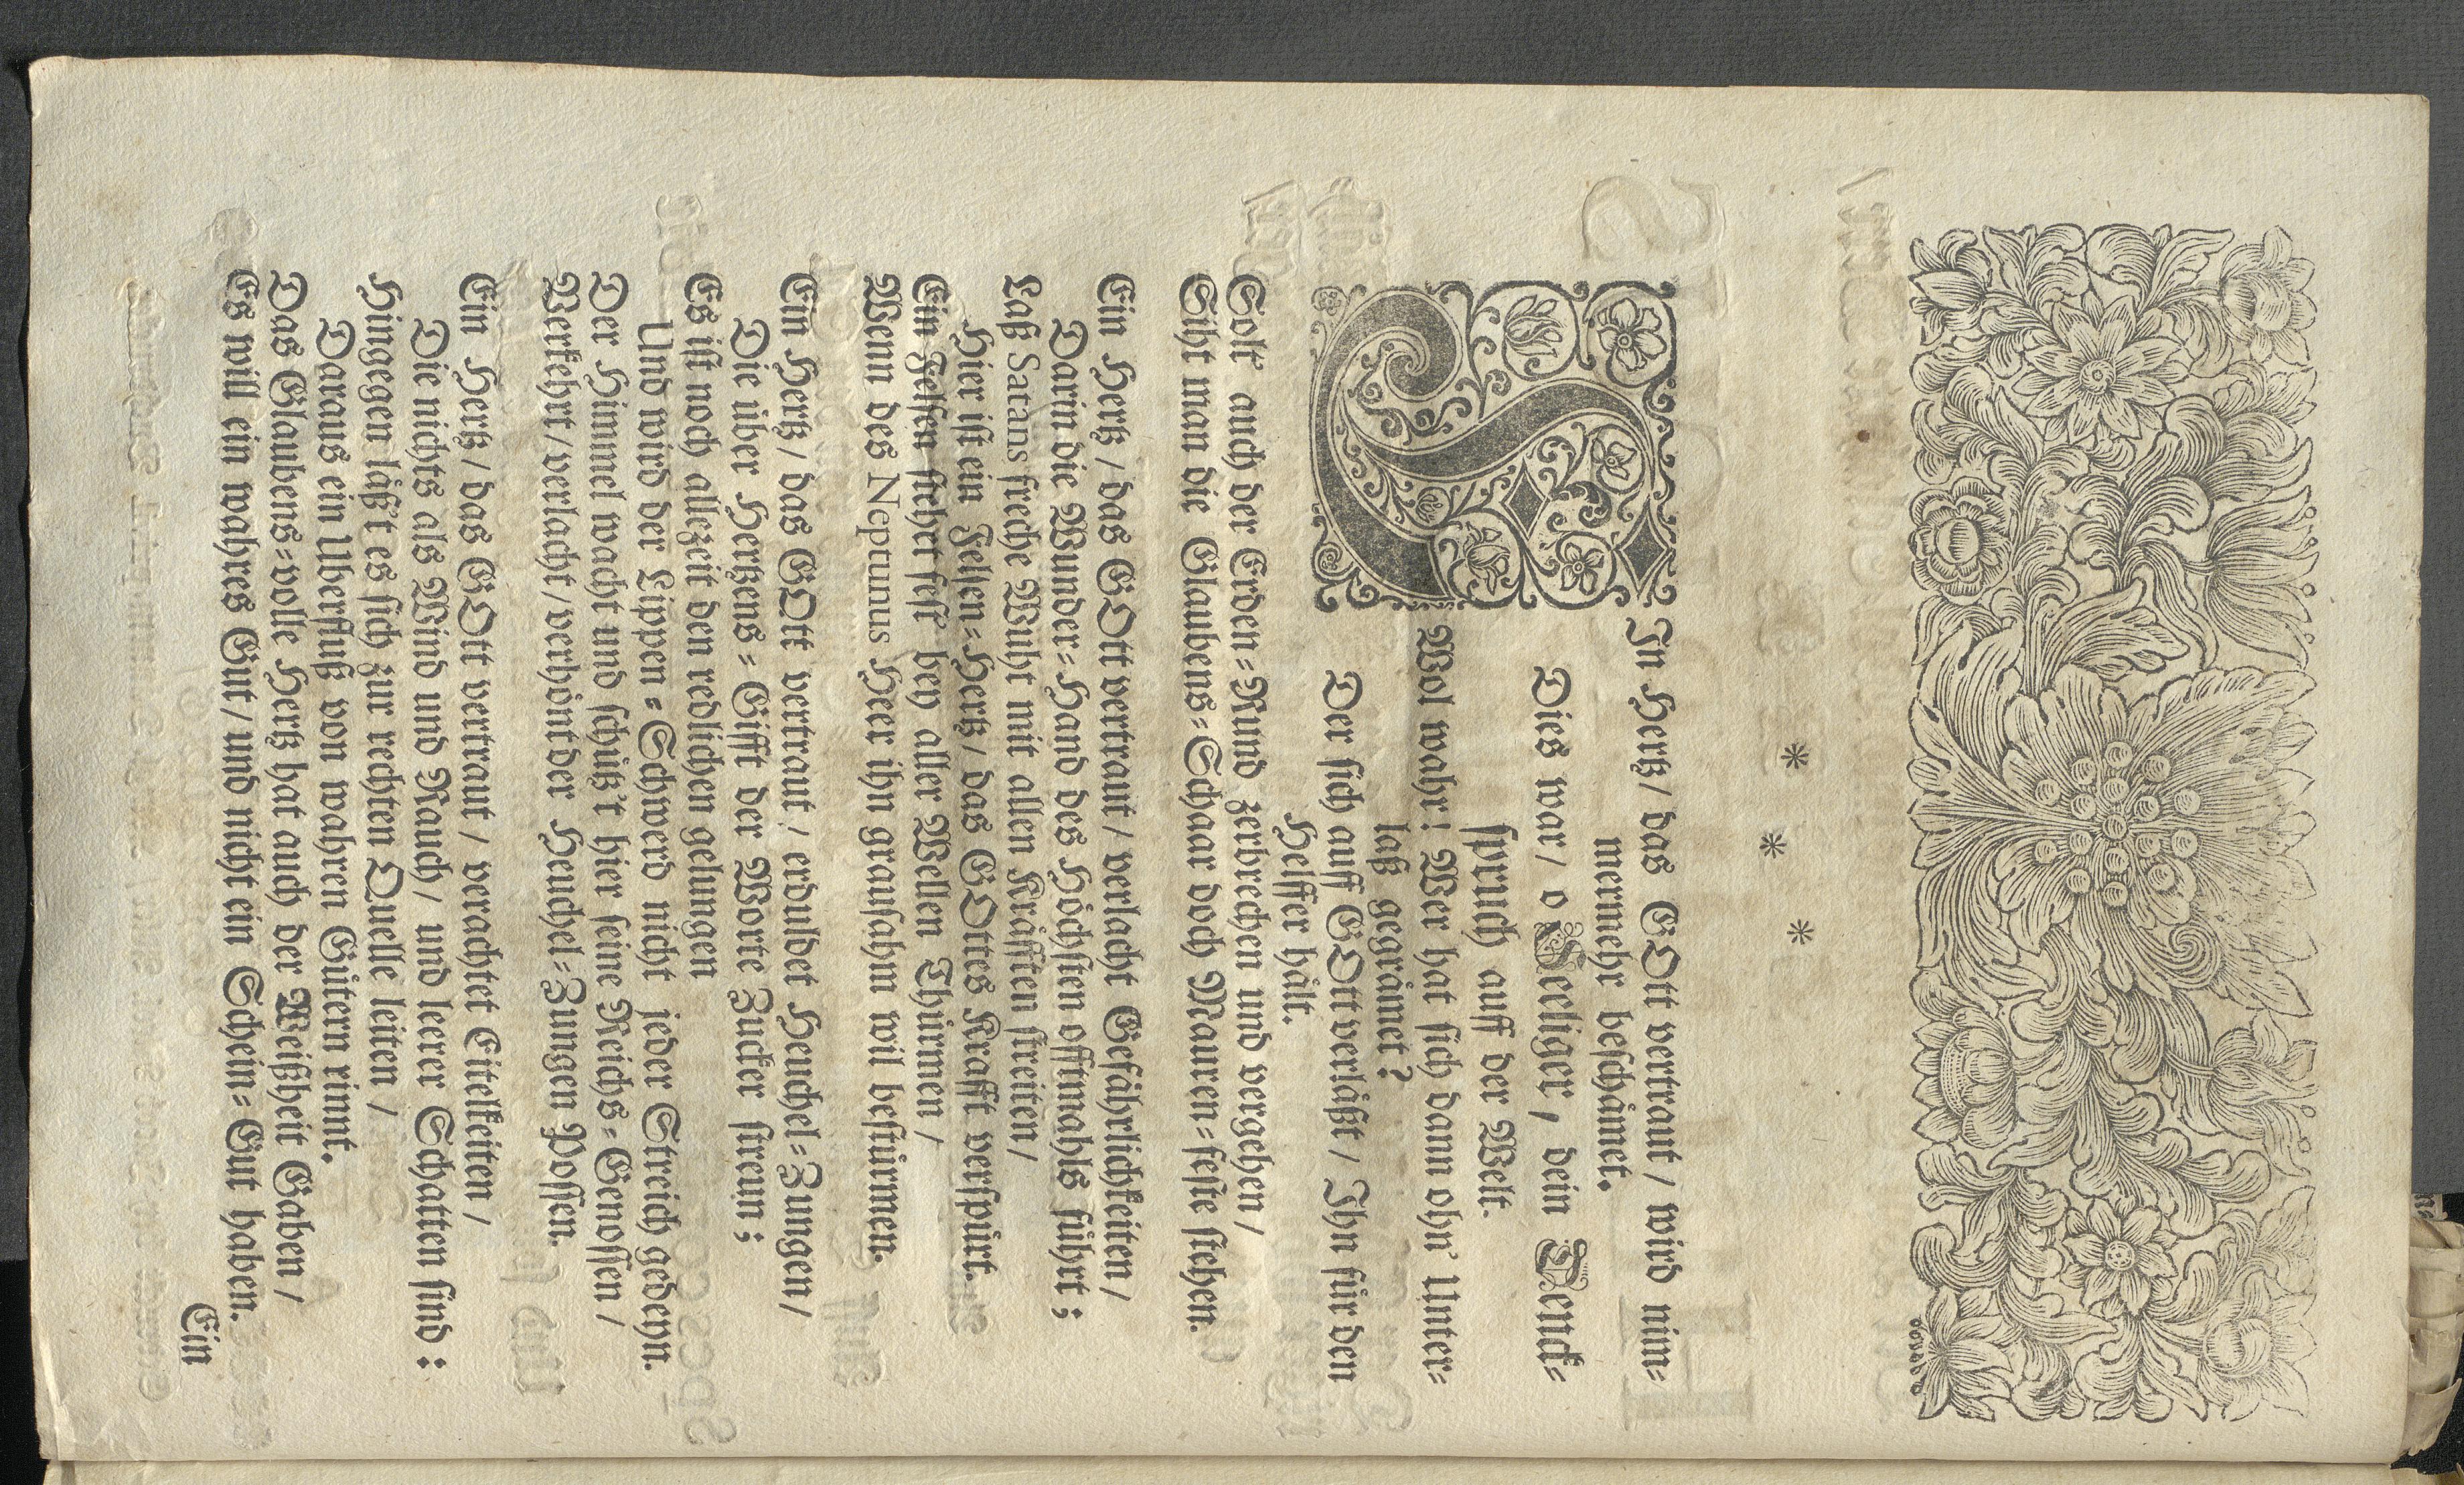 * * *
EIn Hertz / das GOtt vertraut / wird nim-
mermehr beschämet.
Dies war / o Seeliger / dein Denck-
spruch auff der Welt.
Wol wahr! Wer hat sich dann ohn' Unter-
laß gegrämet?
Der sich auff GOtt verläßt / Ihn für den
Helffer hält.
Solt' auch der Erden-Rund zerbrechen und vergehen /
Siht man die Glaubens-Schaar doch Mauren-feste stehen.
Ein Hertz / das GOtt vertraut / verlacht Gefährlichkeiten /
Darin die Wunder-Hand des Höchsten offtmahls führt ;
Laß Satans freche Wuht mit allen Kräfften streiten /
Hier ist ein Felsen-Hertz / das GOttes Krafft verspürt.
Ein Felsen stehet fest bey aller Wellen Thürmen /
Wenn des Neptunus Heer ihn grausahm wil bestürmen.
Ein Hertz / das GOtt vertraut / erduldet Heuchel-Zungen /
Die über Hertzens-Gifft der Worte Zucker streun ;
Es ist noch allezeit den redlichen gelungen
Und wird der Lippen-Schwerd nicht jeder Streich gedeyn.
Der Himmel wacht und schützt hier seine Reichs-Genossen /
Verkehrt / verlacht / verhönt der Heuchel-Zungen Possen.
Ein Hertz / das GOtt vertraut / verachtet Eitelkeiten /
Die nichts als Wind und Rauch / und leerer Schatten sind :
Hingegen läßt es sich zur rechten Quelle leiten /
Daraus ein Uberfluß von wahren Gütern rinnt.
Das Glaubens-volle Hertz hat auch der Weißheit Gaben /
Es will ein wahres Gut / und nicht ein Schein-Gut haben.
Ein